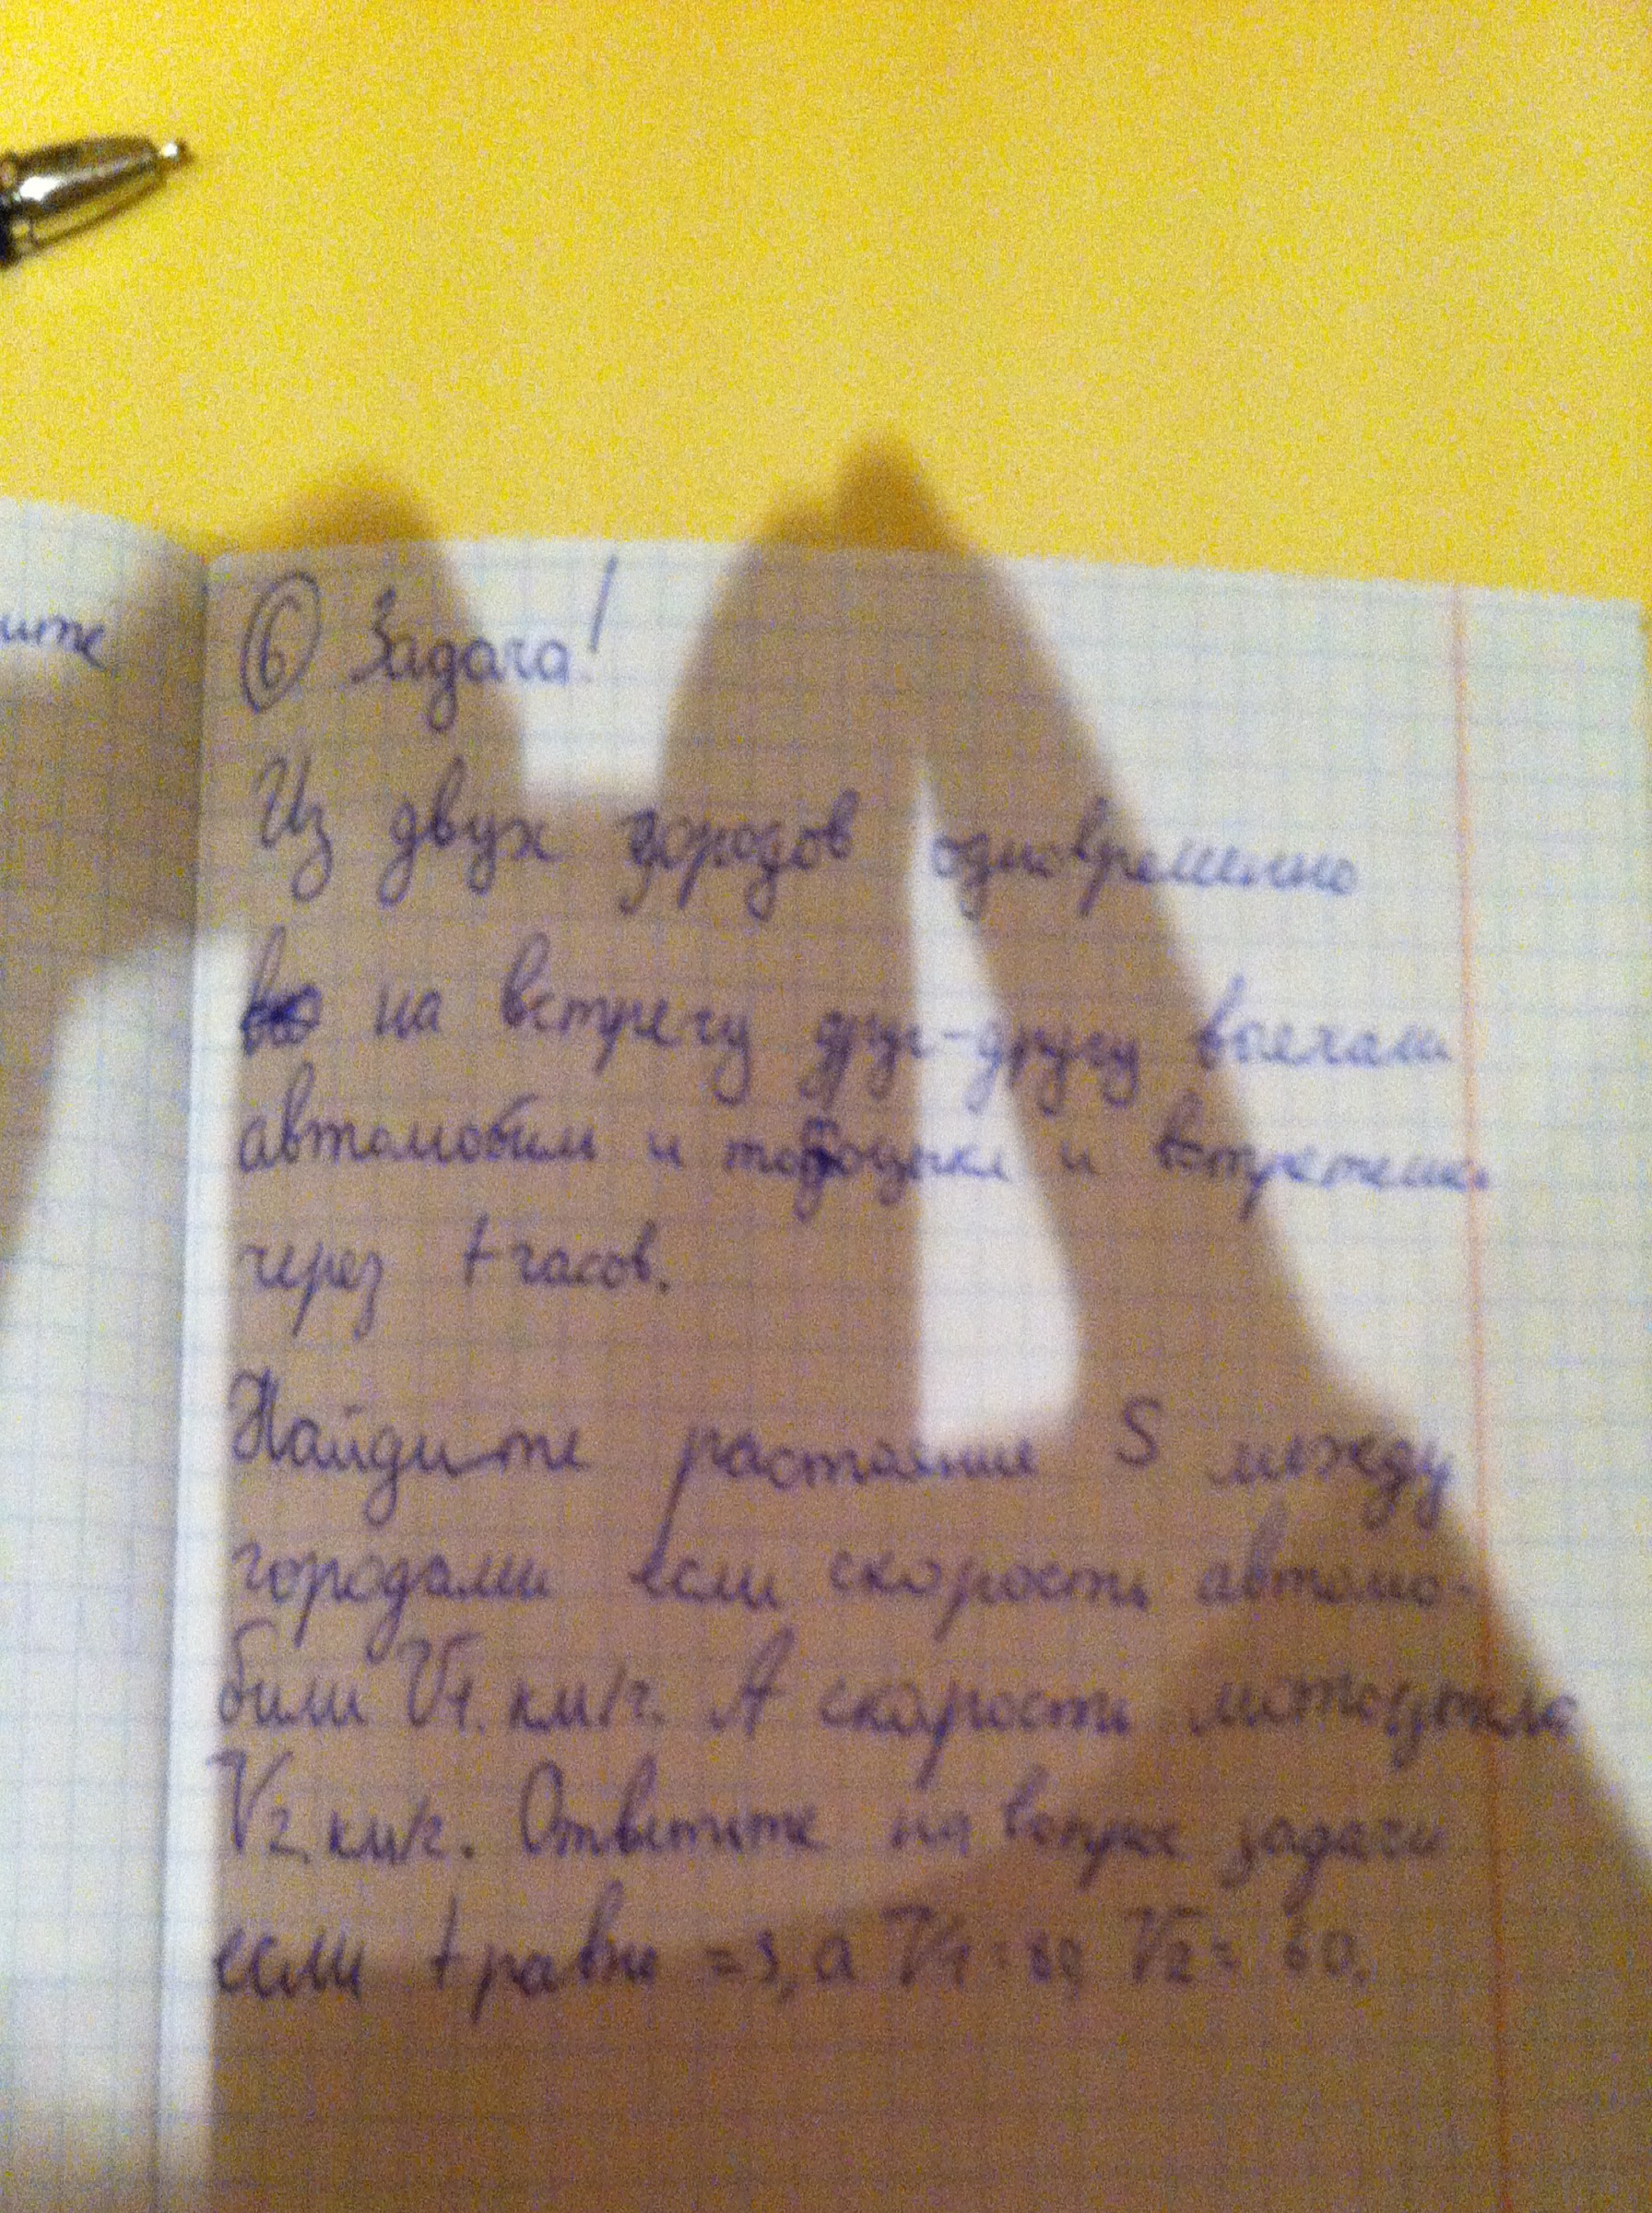 ите
⑥ Задача!
Из двух городов одновременно
на встречу друг-другу выехали
автомобиль и мотоцикл и встретились
через t часов.
Найдите растояние S между
городами если скорость автомо-
били V1. км/ч. А скорость мотоцикла
V2. км/ч. Ответите на вопрос задачи
если t равно =3, а V1= V2= 60.